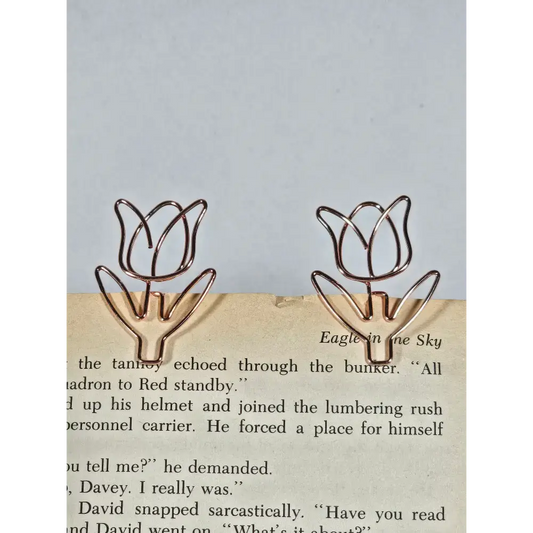 Eagle in the Sky
the tannoy echoed through the bunker. "All
uadron to Red standby."
d up his helmet and joined the lumbering rush
personnel carrier. He forced a place for himself
ou tell me?" he demanded.
, Davey. I really was."
David snapped sarcastically. "Have you read
nd David went on. "What's it about?"